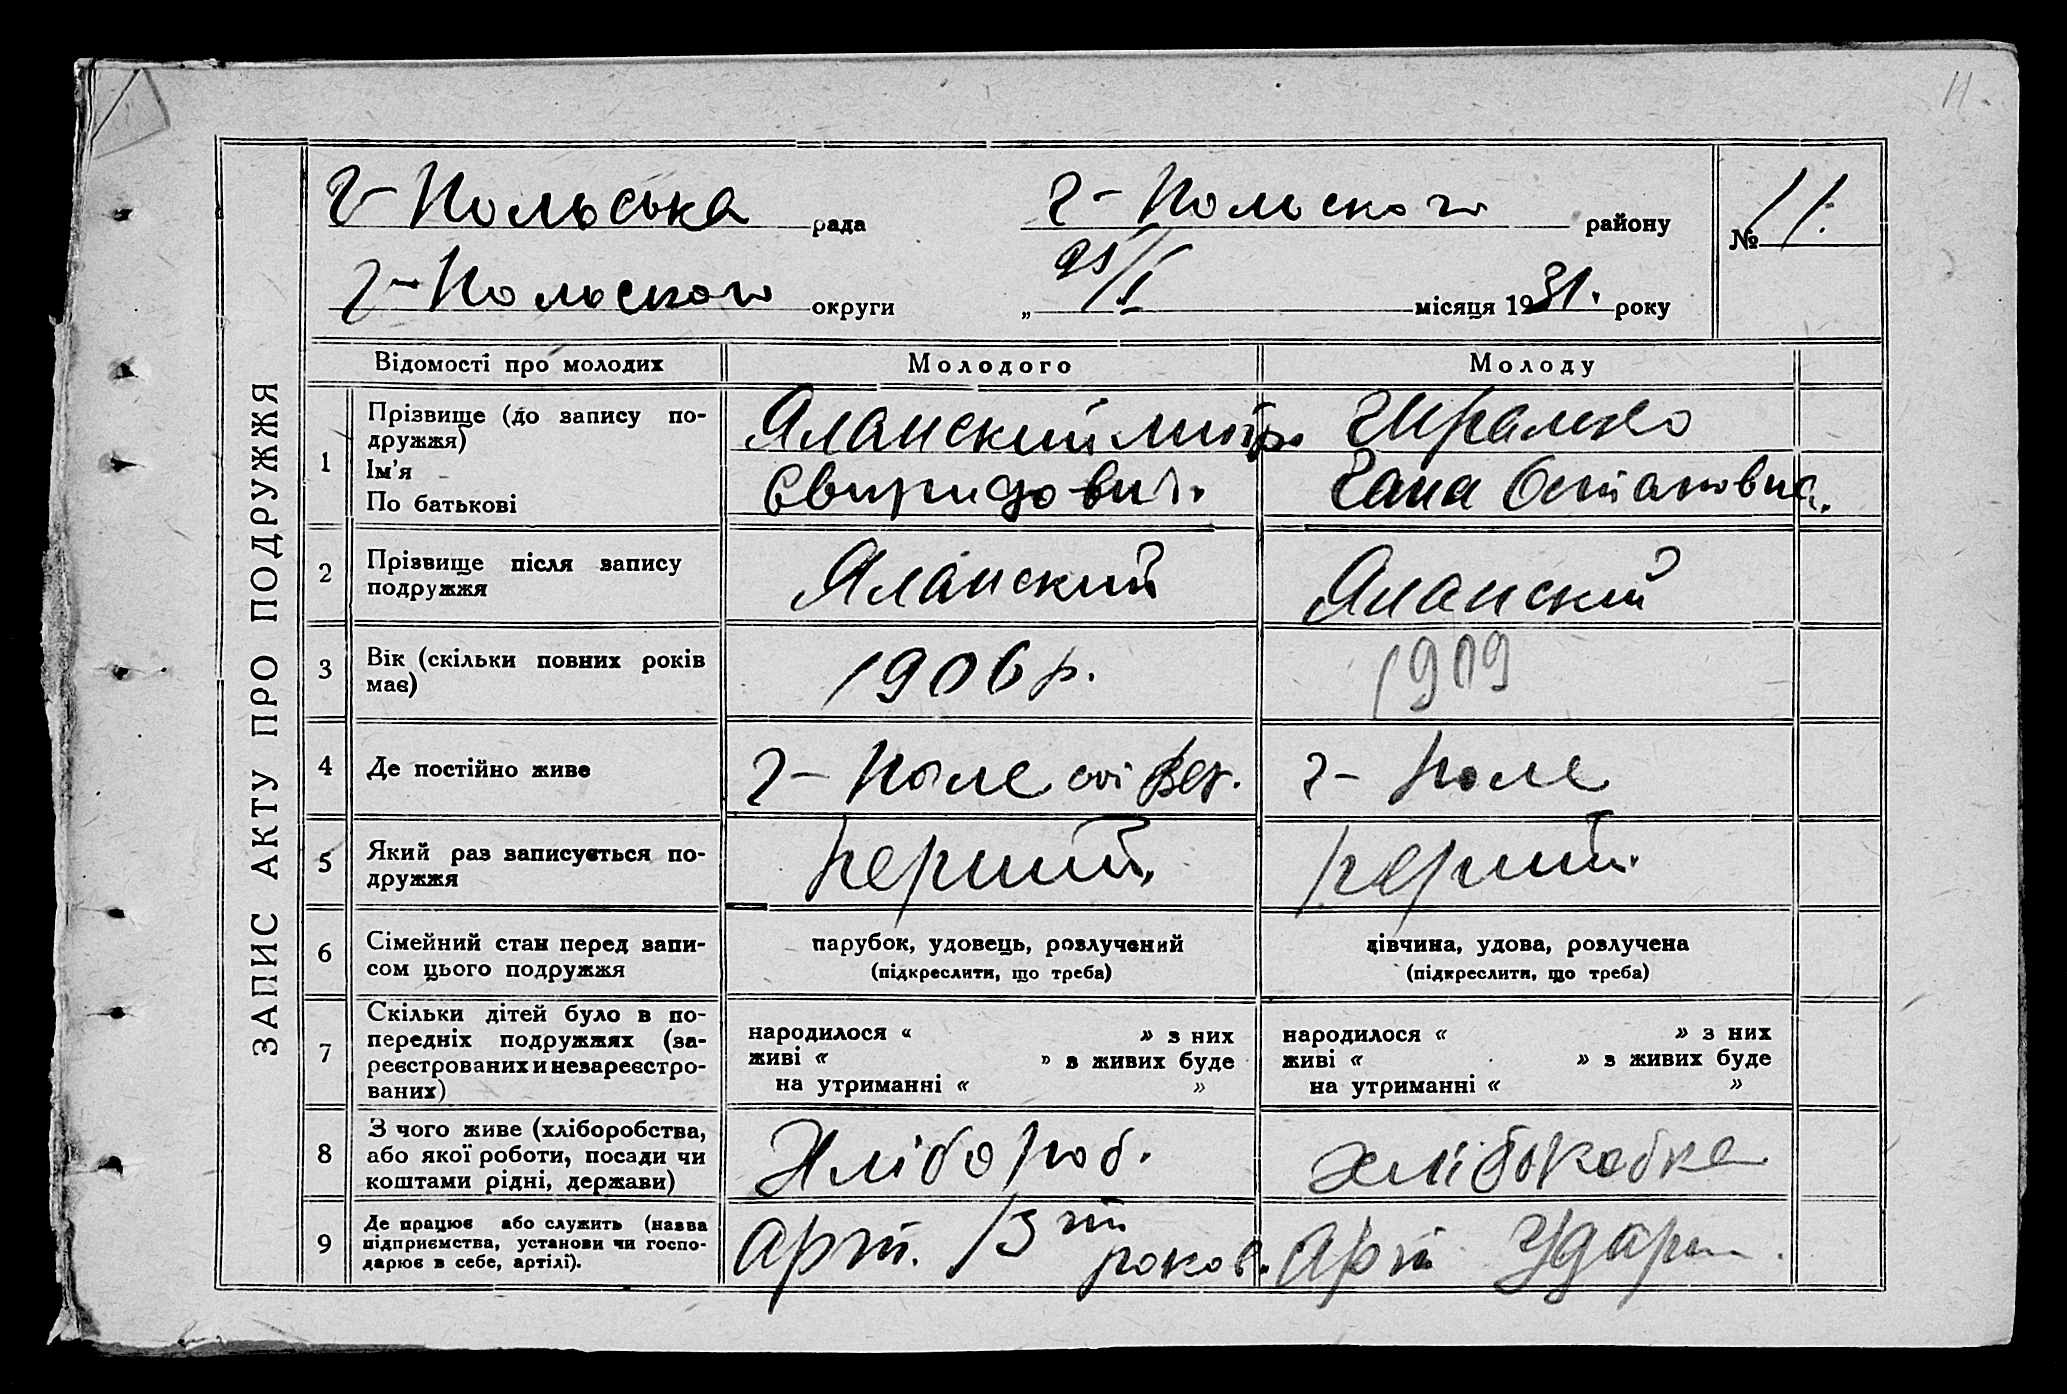 11.
ЗАПИС АКТУ ПРО ПОДРУЖЖЯ
Г-Польська рада Г-Польского району № 11.
Г-Польского округи „ 25/I місяця 1931. року
Відомості про молодих Молодого Молоду
1 Прізвище (до запису по-
дружжя)
Ім'я
По батькові
Яланский Митро
Свиридович.
Гана Остаповна.
2 Прізвище після запису
подружжя
Яланский Яланский
3 Вік (скільки повних років
має)
1906 р. 1909
4 Де постійно живе Г-Поле Г-Поле
5 Який раз записується по-
дружжя
перший. перший.
6 Сімейний стан перед запи-
сом цього подружжя
парубок, удовець, розлучений
(підкреслити, що треба)
дівчина, удова, розлучена
(підкреслити, що треба)
7 Скільки дітей було в по-
передніх подружжях (за-
реєстрованих и незареєстро-
ваних)
народилося « » з них
живі « » з живих буде
на утриманні « »
народилося « » з них
живі « » з живих буде
на утриманні « »
8 З чого живе (хліборобства,
або якої роботи, посади чи
коштами рідні, держави)
Хлібороб. хліборобка
9 Де працює або служить (назва
підприємства, установи чи госпо-
дарює в себе, артілі).
Арт. 13 роков. Арт Ударн.